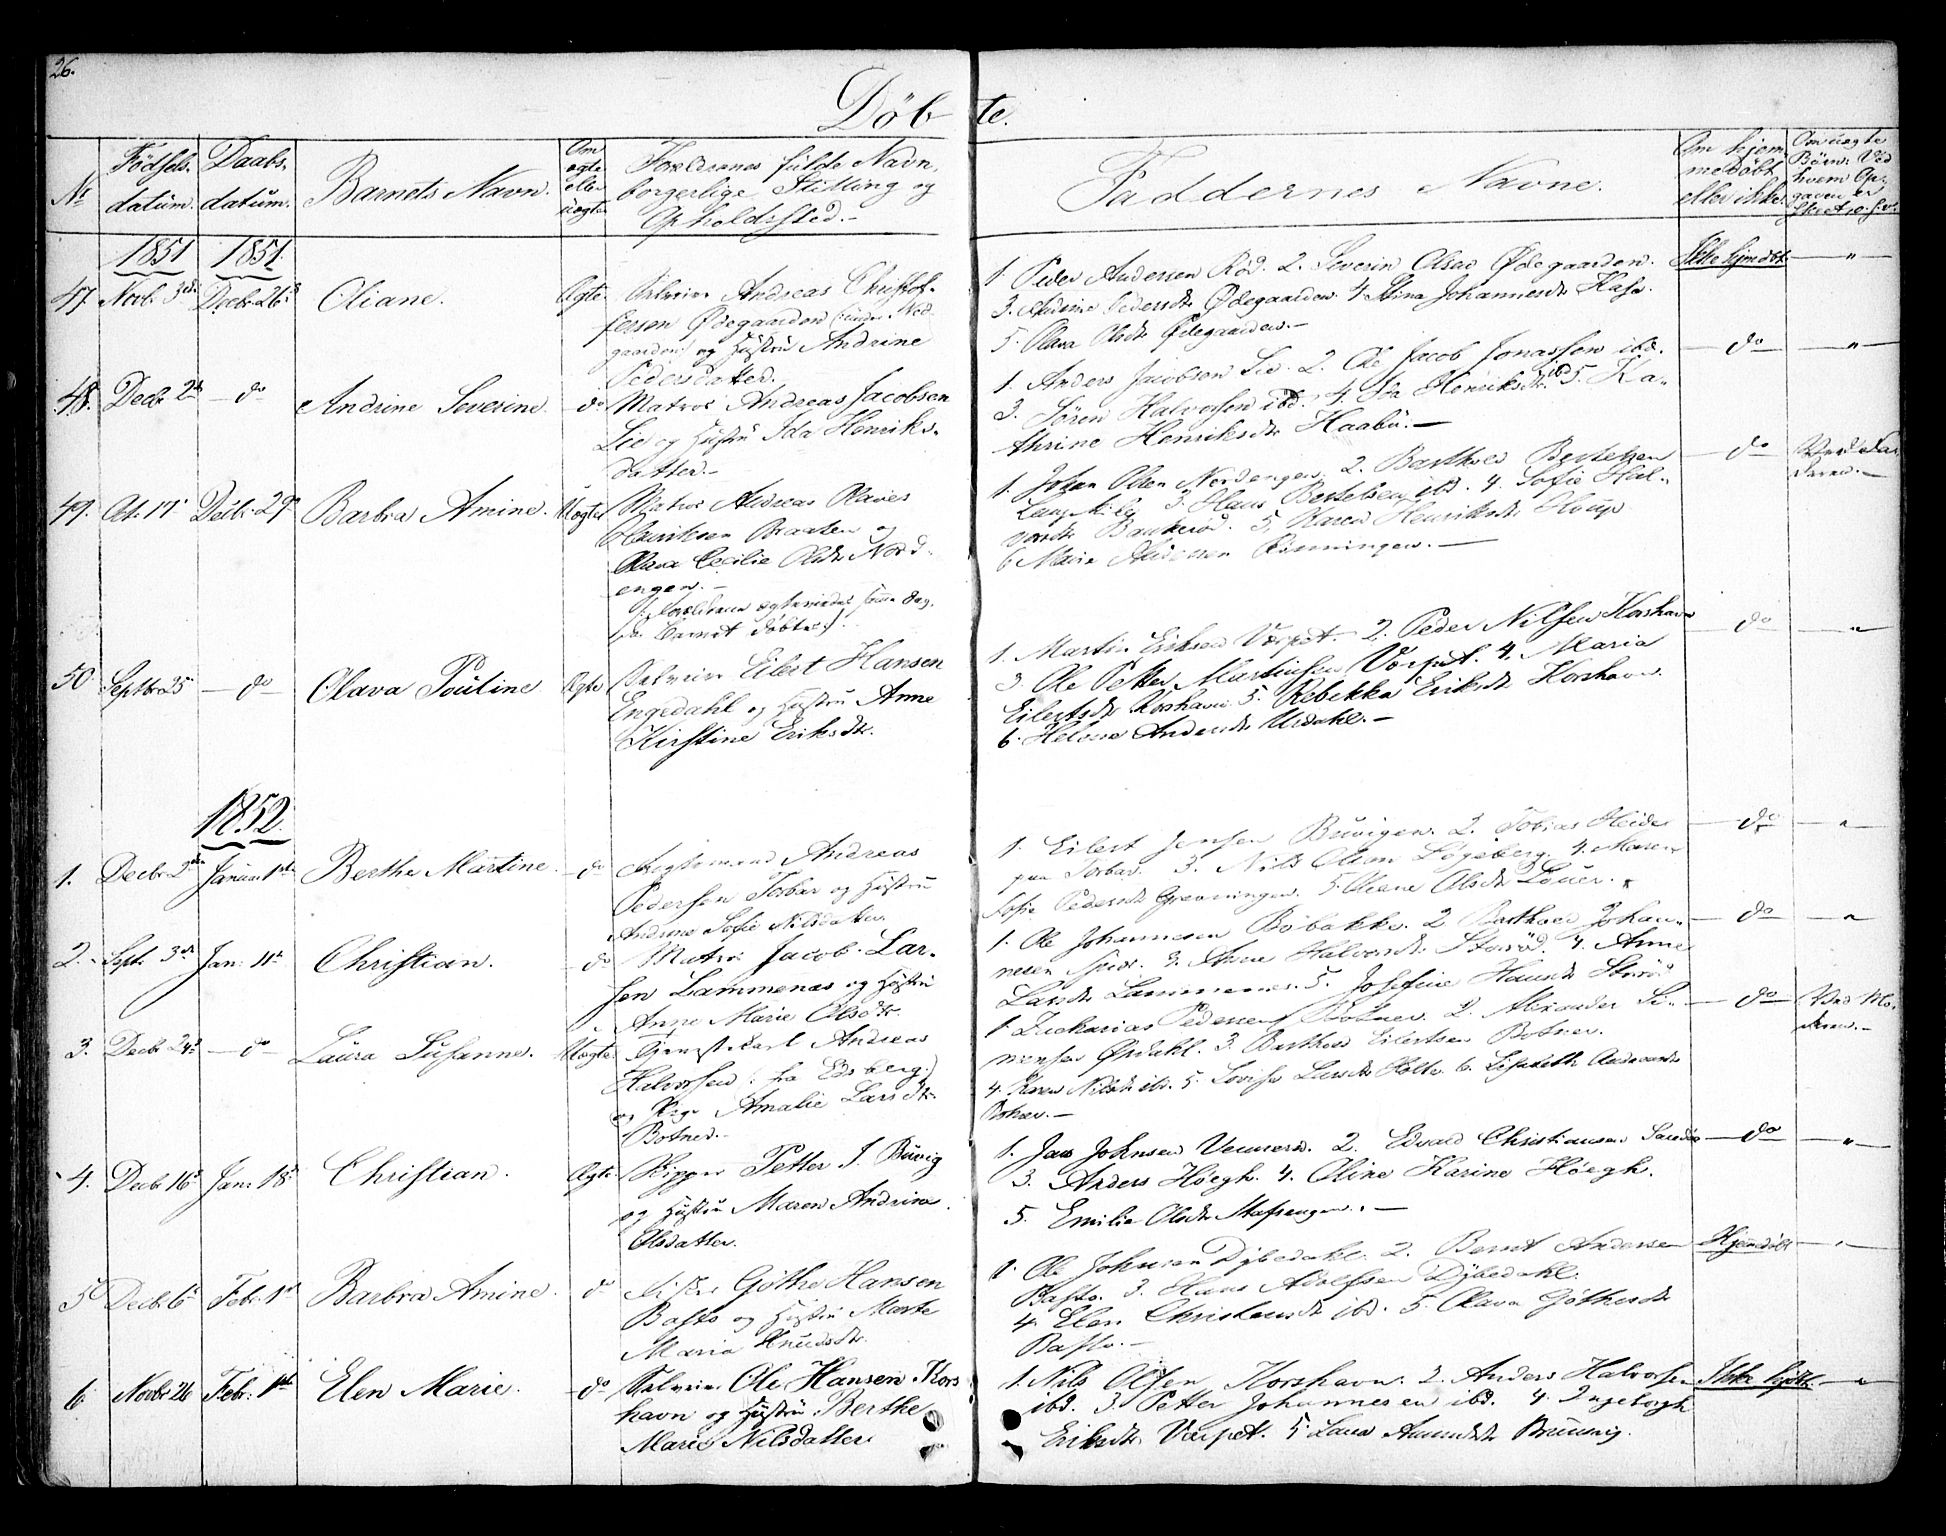 26.
Döbte.
Nr
Födsels-datum.
Daabs-datum.
Barnets Navn.
Om ægte eller uægte
Forældrenes fulde Navn, borgerlige Stilling og Opholdssted.-
Faddernes Navne.
Om hjemmedöbt eller ikke.
Om uægte Börn: Ved hvem Opgaven er
1851 1851.
47. Novb. 3de Decb. 26de Oliane. Ægte.
Andreas Christof-
fersen Ødegaarden
og Hustru Andrine
Pedersdatter.
1. Peder Andersen Röd. 2. Severin Olsen Ødegaarden.
3. Andrine Pedersdtr Ødegaarden. 4. Stina Johannesdtr
5. Olava Olsdtr Ødegaarden.-
Ikke hjmdöbt "
48. Decb. 2den do Andrine Severine. do
Matros Andreas Jacobsen
Lie og Hustru Ida Henriks-
datter.-
1. Anders Jacobsen Lie. 2. Ole Jacob Jonassen ibd.
3. Sören Halvorsen ibd. 4. Ida Henriksdtr ibd 5. Ka-
thrine Henriksdtr Haabu.-
do "
49. Oct. 17. Decb. 29de Barbra Amine. Uægte
Matros Andreas Olaves
Henriksen Braaten og
Olava Cecilie Olsdtr Nord-
engen.-
Barnet döbtes
1. Johan Olsen Nordengen. 2. Barthold Bertelsen
3. Hans Bertelsen ibd. 4. Sofie Hal-
vorsdtr 5. Karen Henriksdtr
6. Marie Andersen Rönningen.-
do Ved Fa-
deren.-
50. Septbr 25 do Olava Pouline Ægte
Eilert Hansen
Engedahl og Hustru Anne
Kirstine Eriksdtr.
1. Martin Eriksen Værpet. 2. Peder Nilsen Korshavn
3. Ole Petter Martinsen Værpet. 4. Maria
Eilertsdtr Korshavn 5. Rebekka Eriksdtr Korshavn.
6. Helene Andersdtr Urdahl.-
do "
1852.
1. Decbr 2den Januar 1ste Berthe Martine. do
Andreas
Pedersen Torbar og Hustru
Andrine Sofie Nilsdatter.
1. Eilert Jensen Buvigen. 2. Tobias
3. Nils Olsen Løgeberg. 4. Maren
Sofie Pedersdtr Grevningen. 5. Oliane Olsdtr
do "
2. Sept. 3de Jan. 11te Christian. do
Matros Jacob Lar-
sen Lammenæs og Hustru
Anne Marie Olsdtr.
1. Ole Johannesen Böbakke. 2. Barthold Johan-
nesen 3. Anne Halvorsdtr Storöd. 4. Anne
Larsdtr Lammenes. 5. Josefine Hansdtr Storöd
do "
3. Decbr 24de do Laura Susanne. Uægte
Tjenestekarl Andreas
Halvorsen (: fra Edsberg:)
og Pige Amalie Larsdtr
Botner.-
1. Zackarias Pedersen Botner. 2. Alexander Si-
monsen Opdahl. 3. Barthold Eilertsen Botner.
4. Karen Nilsdtr ibd. 5. Lovise Larsdtr Holte. 6. Lisabeth
Botner.-
do Ved Mo-
deren.-
4. Decb. 16de Jan. 18de Christian. Ægte
Skipper Petter J. Buvig
og Hustru Maren Andrine
Olsdatter.
1. Jens Johnsen 2. Edvard Christiansen
3. Anders Höegh. 4. Oline Karine Höegh.
5. Emilie Olsdtr
do "
5 Decbr 6te Febr. 1ste Barbra Amine. do
Göthe Hansen
Bastö og Hustru Marte
Maria Knudsdtr.
1. Ole Johnsen Dybedahl. 2. Bernt Andersen
Bastö. 3. Hans Adolfsen Dybedahl.
4. Elen Christensdtr ibd. 5. Olava Göthesdtr
Bastö.-
Hjemdöbt "
6 Novbr 26 Febr. 1ste Elen Marie. do
Ole Hansen Kors-
havn og Hustru Berthe
Marie Nilsdatter
1. Nils Olsen Korshavn. 2. Anders Halvorsen
ibd. 3. Petter Johannesen ibd. 4. Ingeborgh
Eriksdtr Værpet. 5. Laura Amundsdtr
Ikke hjdöbt "